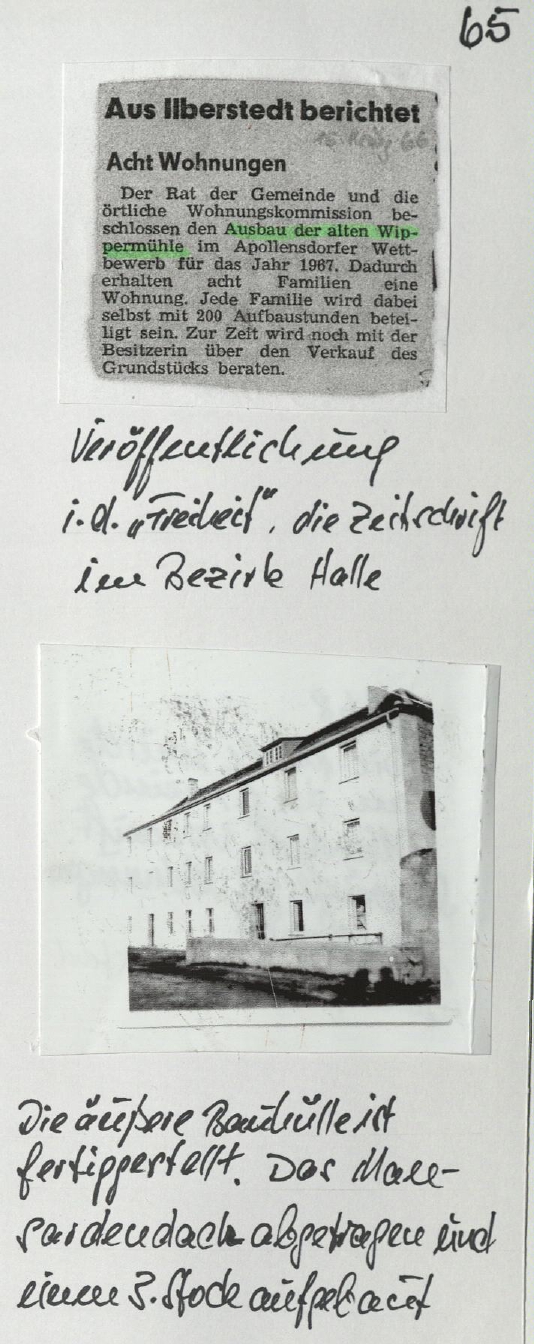 65
Aus Ilberstedt berichtet
66
Acht Wohnungen
Der Rat der Gemeinde und die
örtliche Wohnungskommission be-
schlossen den Ausbau der alten Wip-
permühle im Apollensdorfer Wett-
bewerb für das Jahr 1967. Dadurch
erhalten acht Familien eine
Wohnung. Jede Familie wird dabei
selbst mit 200 Aufbaustunden betei-
ligt sein. Zur Zeit wird noch mit der
Besitzerin über den Verkauf des
Grundstücks beraten.
Veröffentlichung
i.d. „Freiheit", die Zeitschrift
im Bezirk Halle
Die äußere Bauhülle ist
fertiggestellt. Das Man-
sardendach abgetragen und
einen 3. Stock aufgebaut